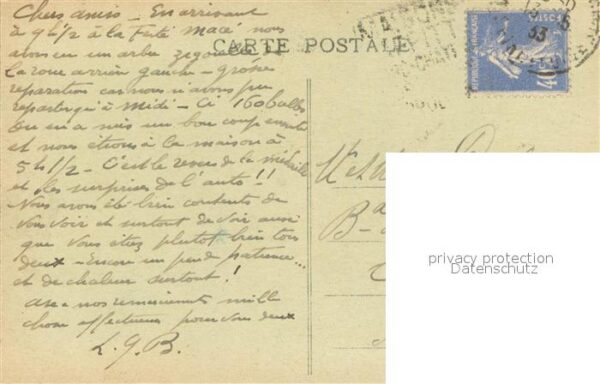 Chers amis. En arrivant
à 9h1/2 à la Ferté Macé nous
avons eu un arbre
la roue arrière gauche - grosse
réparation car nous n'avons pu
repartir qu'à midi - Ci 160 balles
On en a mis un bon coup ensuite
et nous étions à la maison à
5h1/2 - C'est le revers de la médaille
et les surprises de l'auto!!
Nous avons été bien contents de
vous voir et surtout de voir aussi
que vous étiez plutôt bien tous
deux - Encore un peu de patience...
et de chaleur surtout!
Avec nos remerciements mille
choses affectueuses pour vous deux
L.G.B.
CARTE POSTALE
POSTES
33
privacy protection
Datenschutz